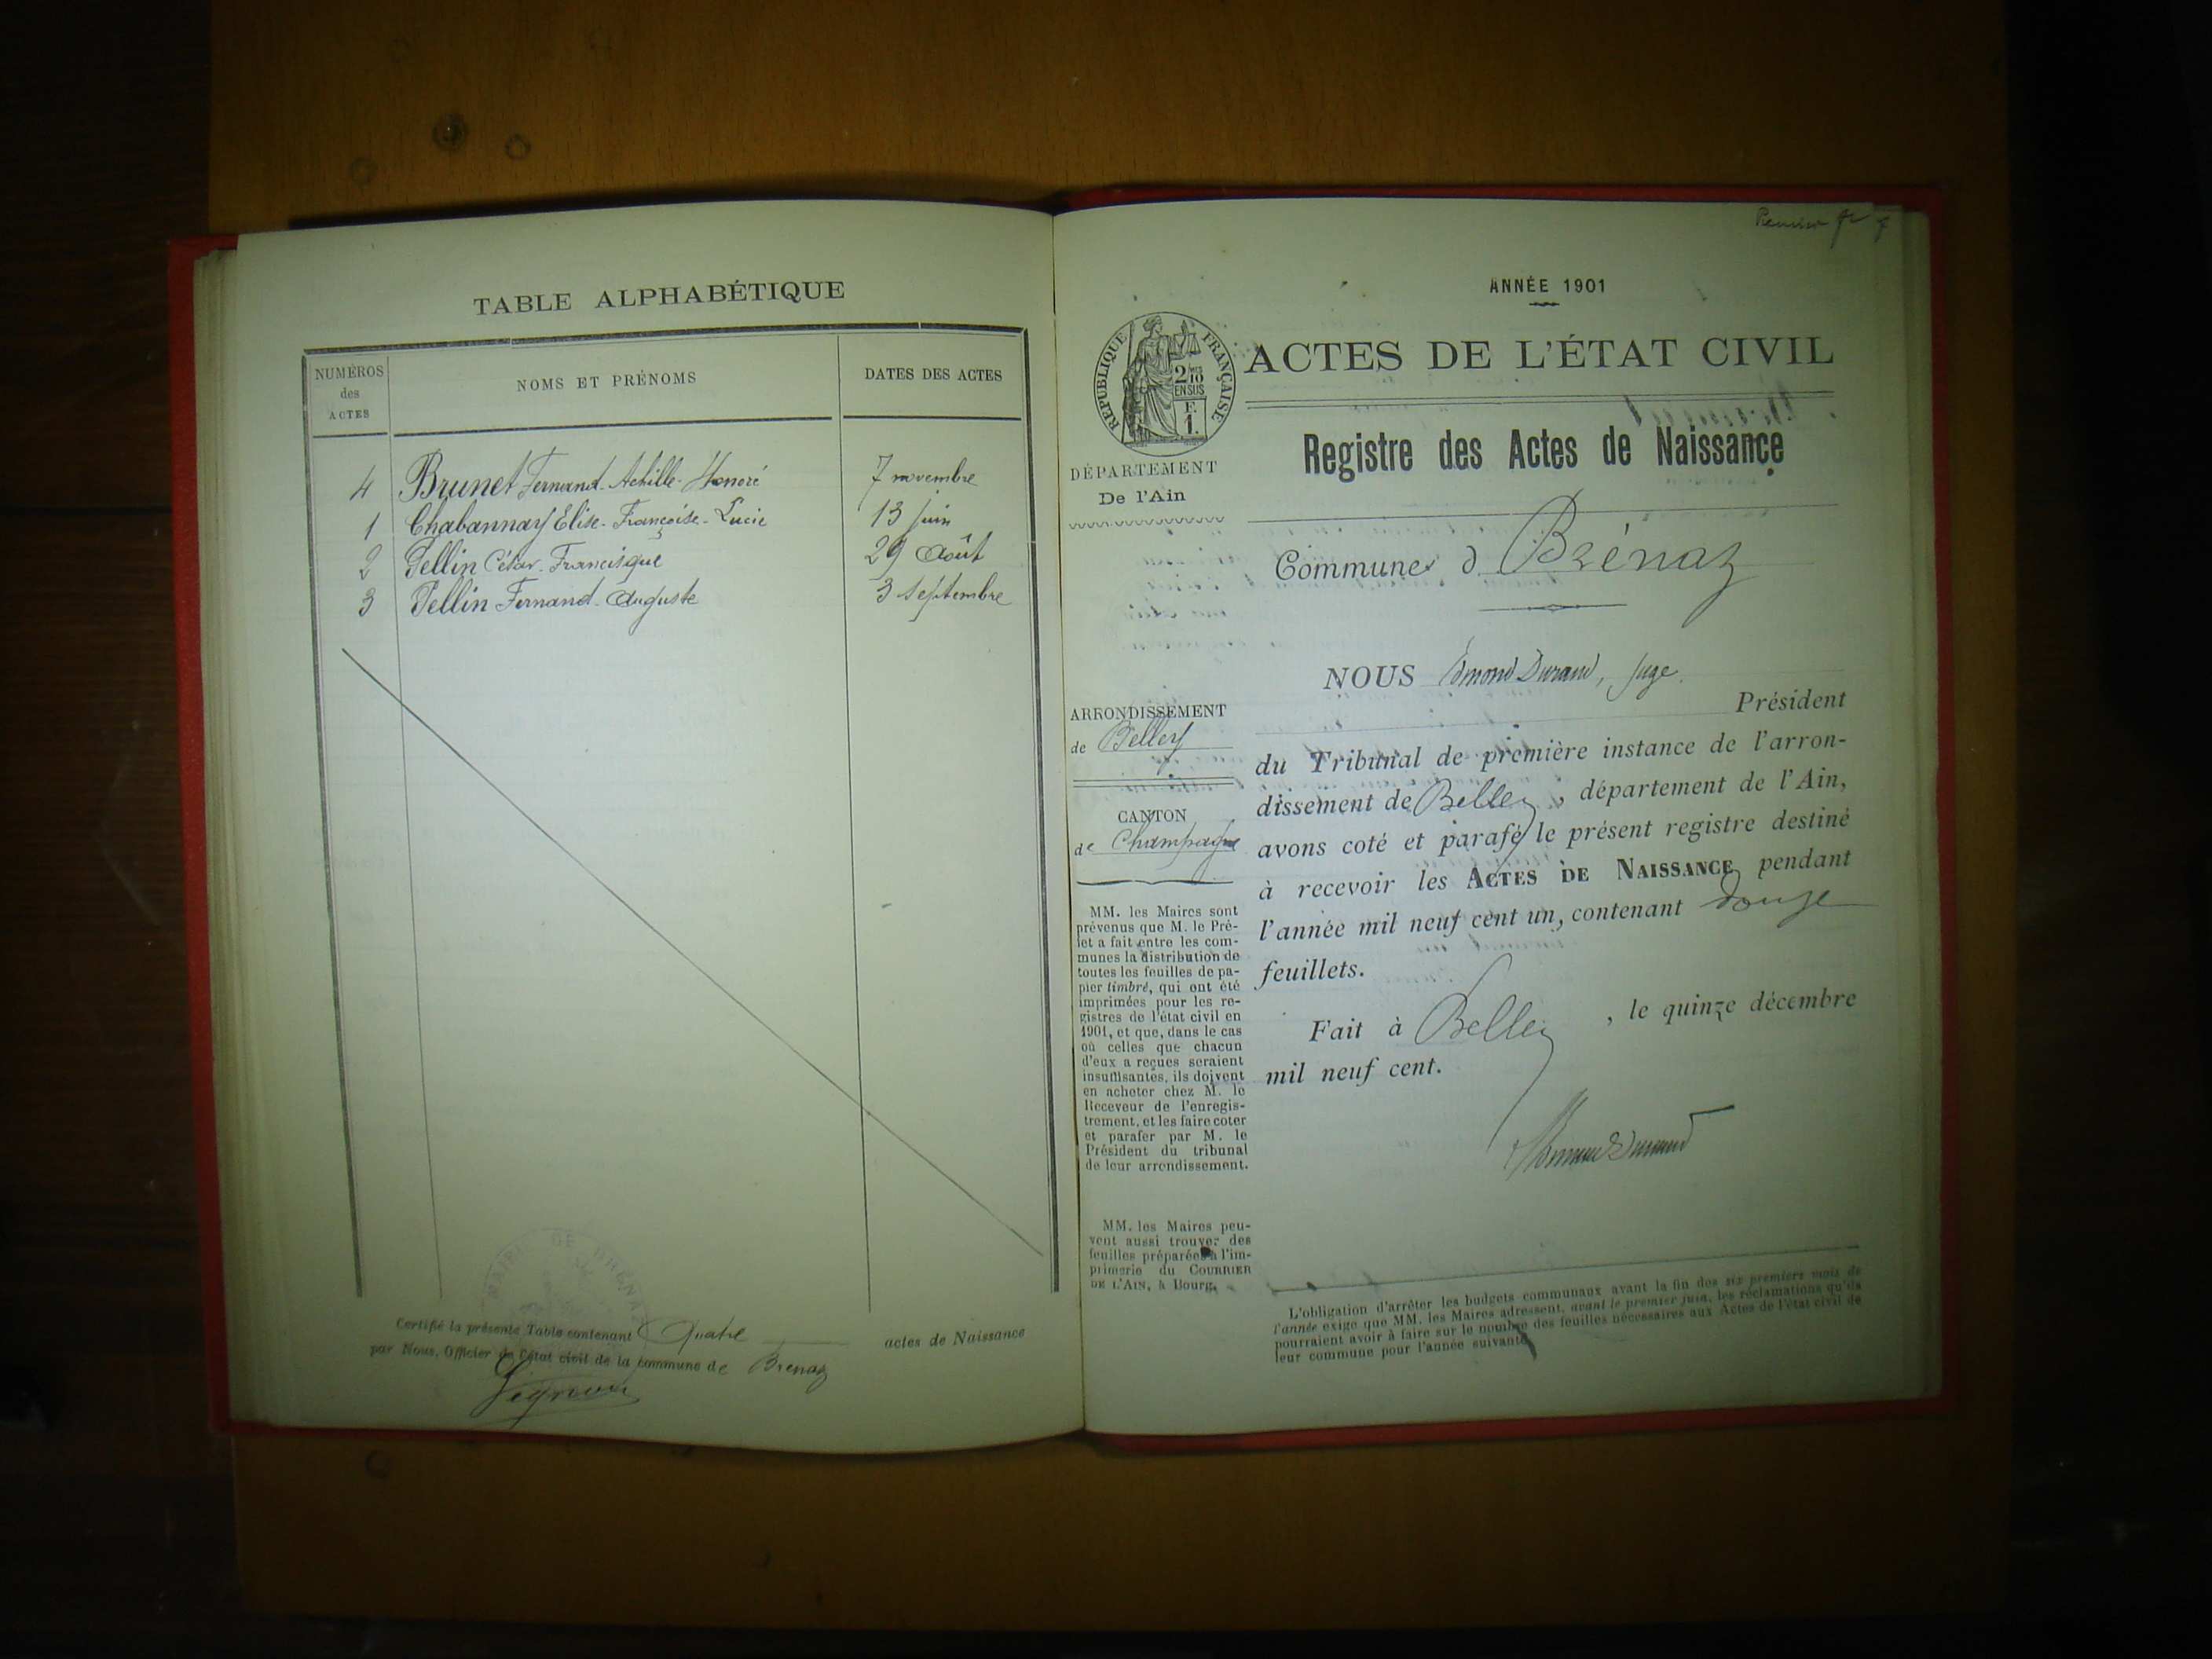 TABLE ALPHABÉTIQUE
NUMÉROS
des
ACTES
NOMS ET PRÉNOMS
DATES DES ACTES
4 Brunet Fernand-Achille-Honoré 7 novembre
1 Chabannay Elise-Françoise-Lucie 13 juin
2 Pellin César-Francisque 29 Août
3 Pellin Fernand-Auguste 3 septembre
MAIRIE DE BRÉNAZ
Certifié la présente Table contenant Quatre actes de Naissance
par Nous, Officier de l'état civil de la commune de Brenaz
Premier
ANNÉE 1901
RÉPUBLIQUE FRANÇAISE
2/10
EN SUS
F.
1.
ACTES DE L'ÉTAT CIVIL
Registre des Actes de Naissance
DÉPARTEMENT
De l'Ain
Commune d Brénaz
ARRONDISSEMENT
de Belley
CANTON
de Champagne
MM. les Maires sont
prévenus que M. le Pré-
fet a fait entre les com-
munes la distribution de
toutes les feuilles de pa-
pier timbré, qui ont été
imprimées pour les re-
gistres de l'état civil en
1901, et que, dans le cas
où celles que chacun
d'eux a reçues seraient
insuffisantes, ils doivent
en acheter chez M. le
Receveur de l'enregis-
trement, et les faire coter
et parafer par M. le
Président du tribunal
de leur arrondissement.
MM. les Maires peu-
vent aussi trouver des
feuilles préparées à l'im-
primerie du COURRIER
DE L'AIN, à Bourg.
NOUS Edmond Durand, juge.
Président
du Tribunal de première instance de l'arron-
dissement de Belley, département de l'Ain,
avons coté et parafé le présent registre destiné
à recevoir les ACTES DE NAISSANCE pendant
l'année mil neuf cent un, contenant douze
feuillets.
Fait à Belley, le quinze décembre
mil neuf cent.
L'obligation d'arrêter les budgets communaux avant la fin des six premiers mois de
l'année exige que MM. les Maires adressent, avant le premier juin, les réclamations qu'ils
pourraient avoir à faire sur le nombre des feuilles nécessaires aux Actes de l'état civil de
leur commune pour l'année suivante.